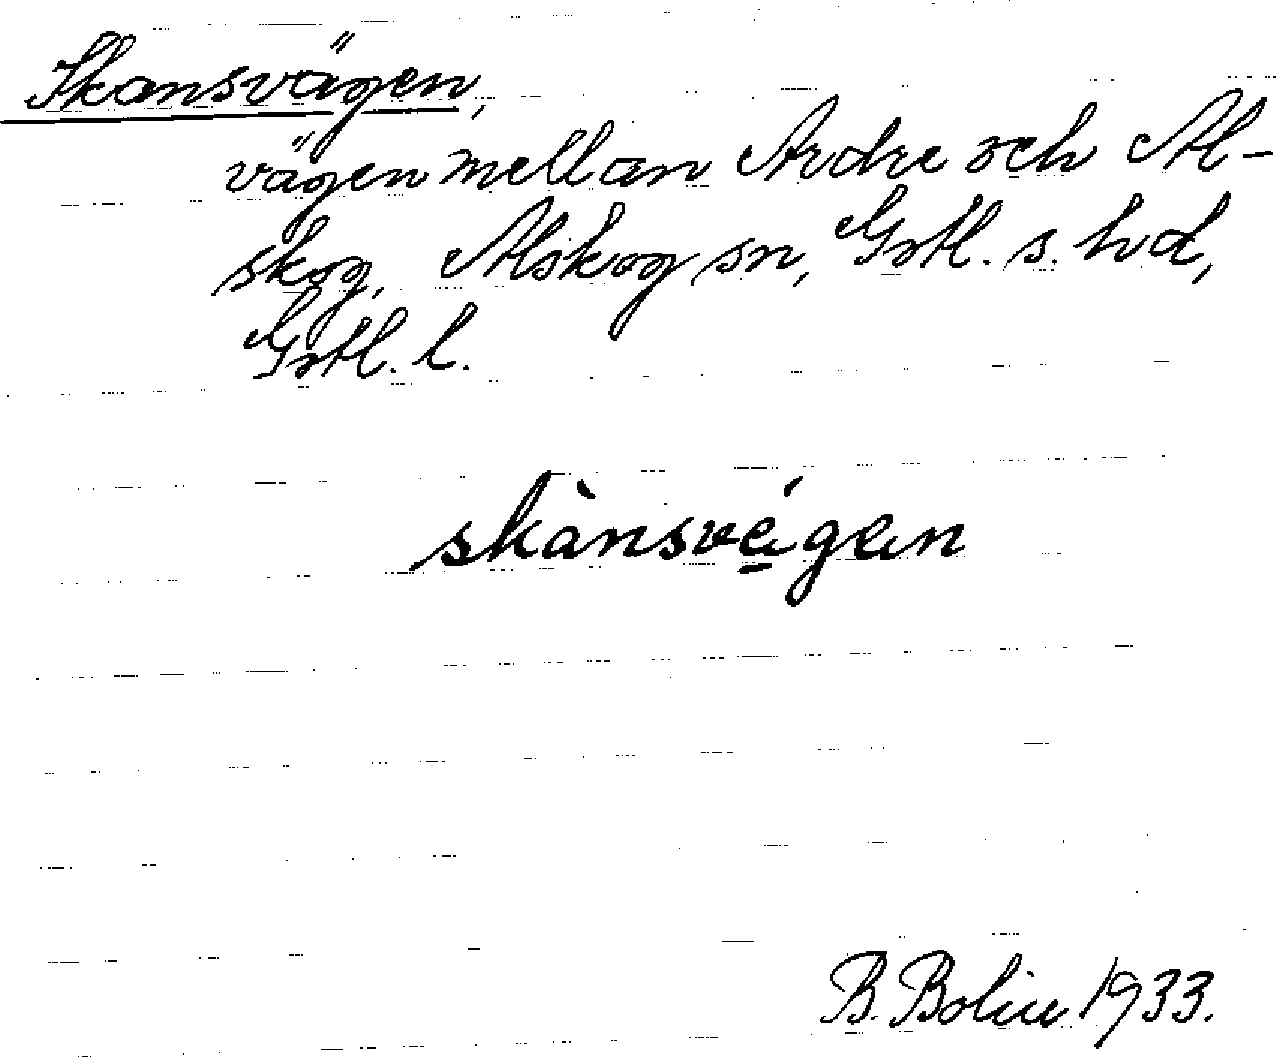 Skansvägen,
vägen mellan Ardre och Al-
skog, Alskog sn, Gotl. s. hd,
Gotl. l.
skànsvé̱gen
B. Bolin 1933.